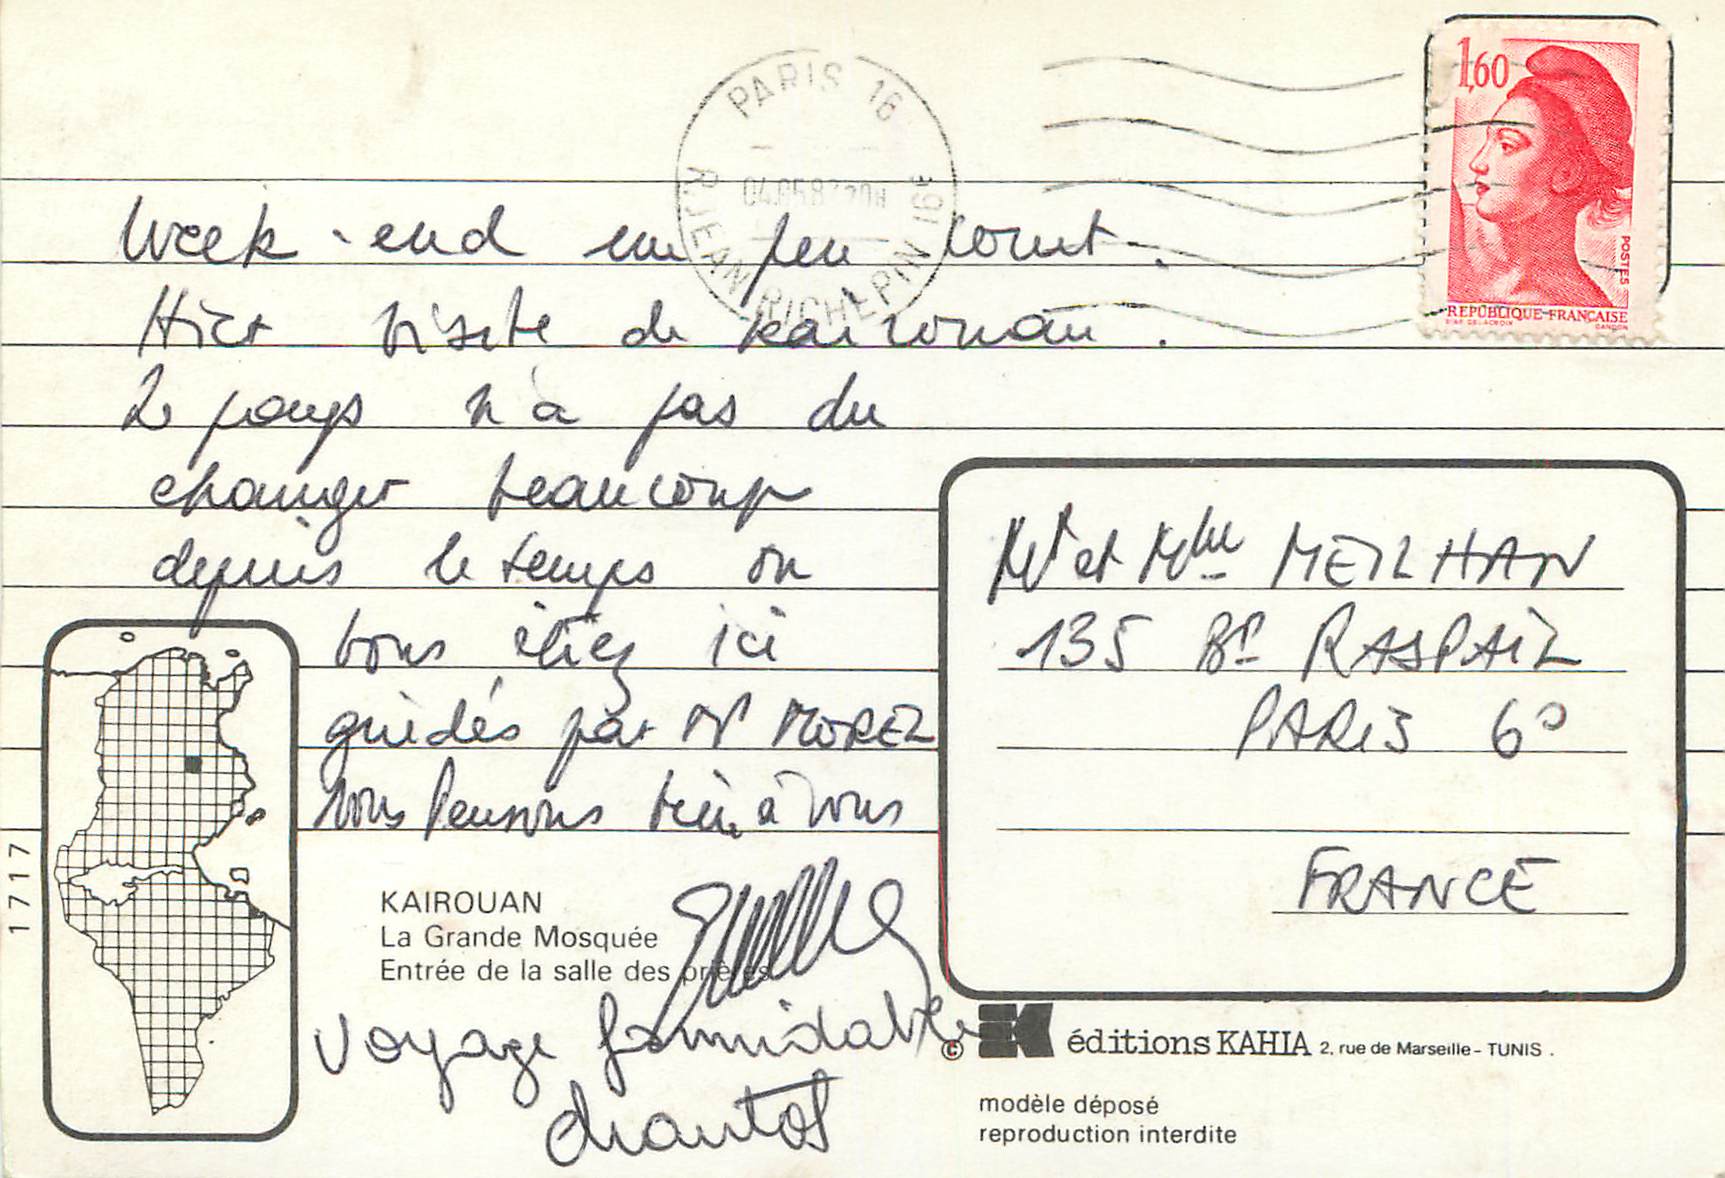 PARIS 16
R. JEAN RICHEPIN (16E)
1,60
POSTES
REPUBLIQUE FRANÇAISE
D'AP. DELACROIX GANDON
Week-end un peu court.
Hier visite de Kairouan.
Le pays n'a pas du
changer beaucoup
depuis le temps où
vous étiez ici
guidés par Mr MOREL
Nous pensons bien à vous
Voyage formidable
Chantal
Mr et Mme MEILHAN
135 Bd RASPAIL
PARIS 6°
FRANCE
1717
KAIROUAN
La Grande Mosquée
Entrée de la salle des prières
© K éditions KAHIA 2, rue de Marseille - TUNIS.
modèle déposé
reproduction interdite